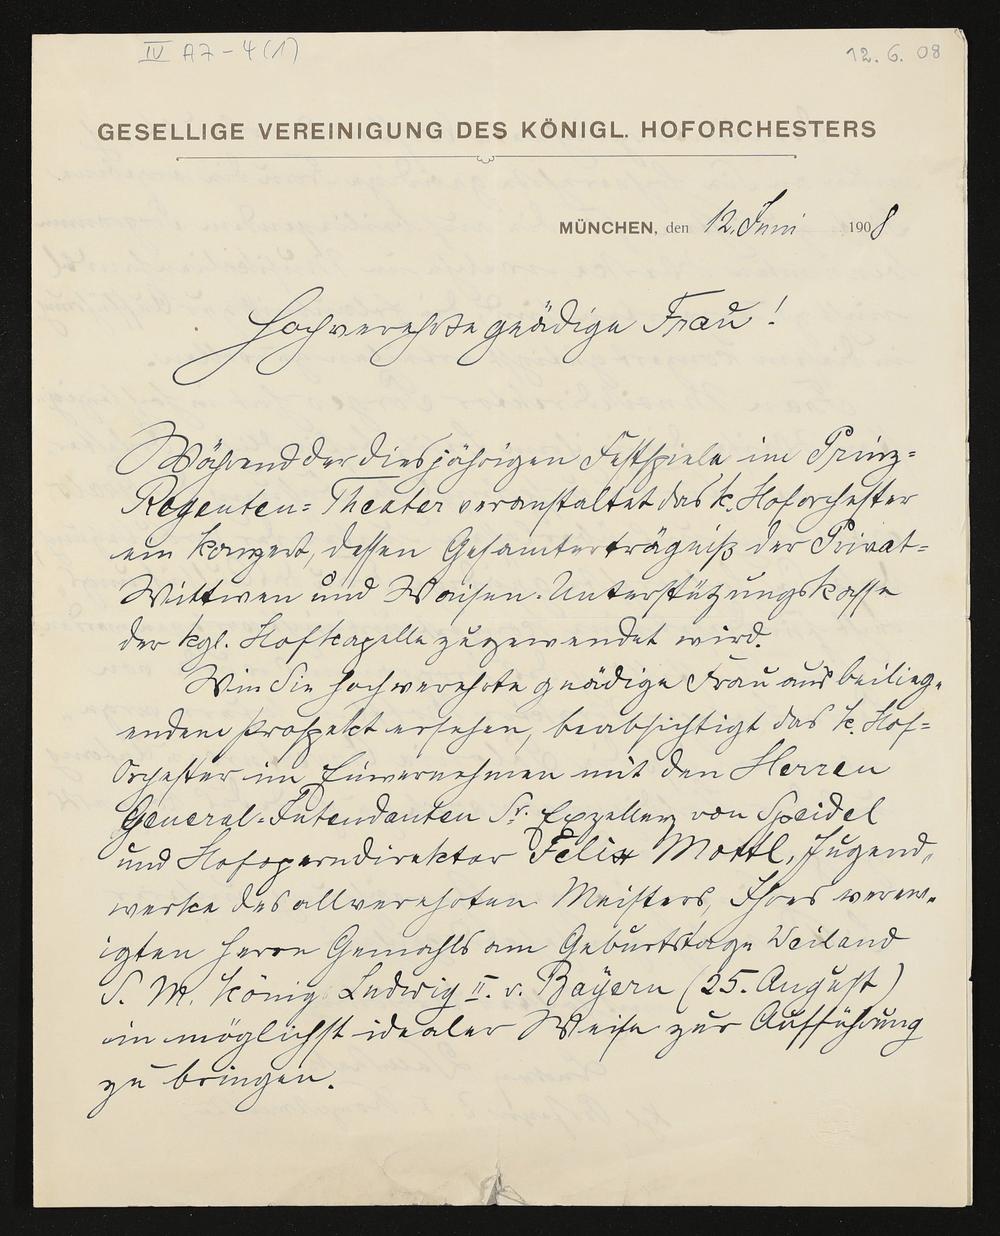 IV A7-4(1)
12. 6. 08
GESELLIGE VEREINIGUNG DES KÖNIGL. HOFORCHESTERS
MÜNCHEN, den 12. Juni 1908
Hochverehrte gnädige Frau!
Während der diesjährigen Festspiele im Prinz=
Regenten=Theater veranstaltet das k. Hoforchester
ein Konzert, dessen Gesamterträgniß der Privat=
Wittwen und Waisen-Unterstützungskasse
der kgl. Hofkapelle zugewendet wird.
Wie Sie hochverehrte gnädige Frau aus beilieg-
endem Prospekt ersehen, beabsichtigt das k. Hof=
Orchester im Einvernehmen mit den Herren
General-Intendanten Sr. Exzellenz von Speidel
und Hofoperndirektor Felix Mottl, Jugend-
werke des allverehrten Meisters, Ihres verew-
igten Herrn Gemahls am Geburtstage Weiland
S. M. König Ludwig II. v. Bayern (25. August)
in möglichst idealer Weise zur Aufführung
zu bringen.